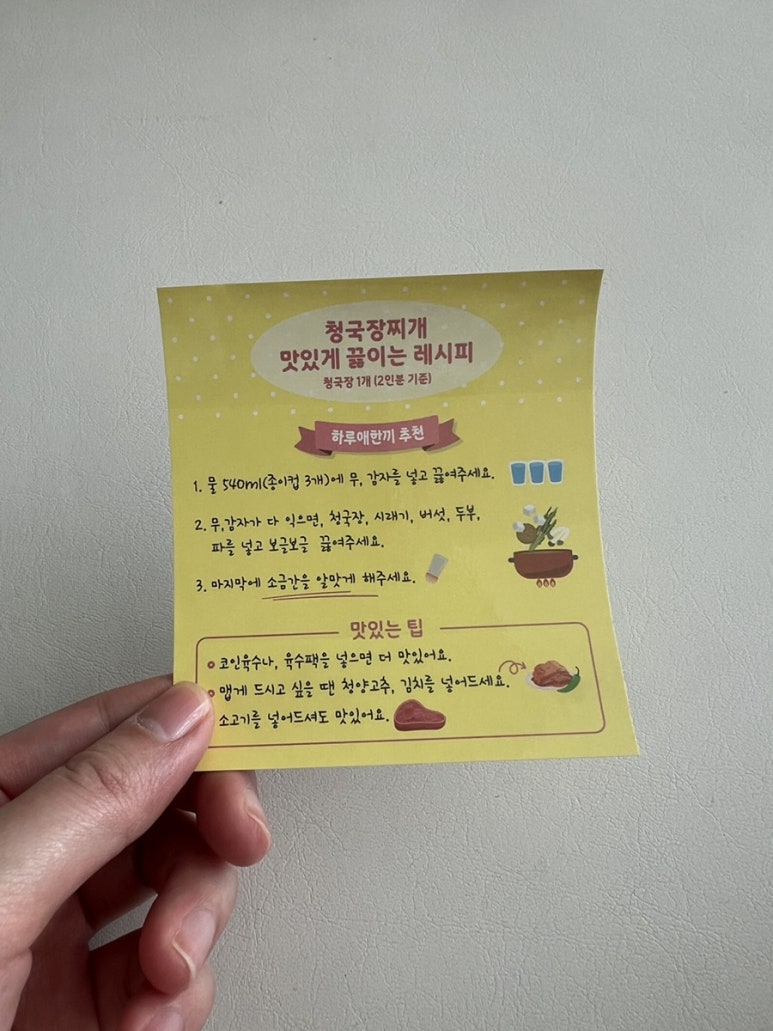 청국장찌개
맛있게 끓이는 레시피
청국장 1개 (2인분 기준)
하루애한끼 추천
1. 물 540ml(종이컵 3개)에 무, 감자를 넣고 끓여주세요.
2. 무,감자가 다 익으면, 청국장, 시래기, 버섯, 두부,
파를 넣고 보글보글 끓여주세요.
3. 마지막에 소금간을 알맞게 해주세요.
맛있는 팁
코인육수나, 육수팩을 넣으면 더 맛있어요.
맵게 드시고 싶을 땐 청양고추, 김치를 넣어드세요.
소고기를 넣어드셔도 맛있어요.